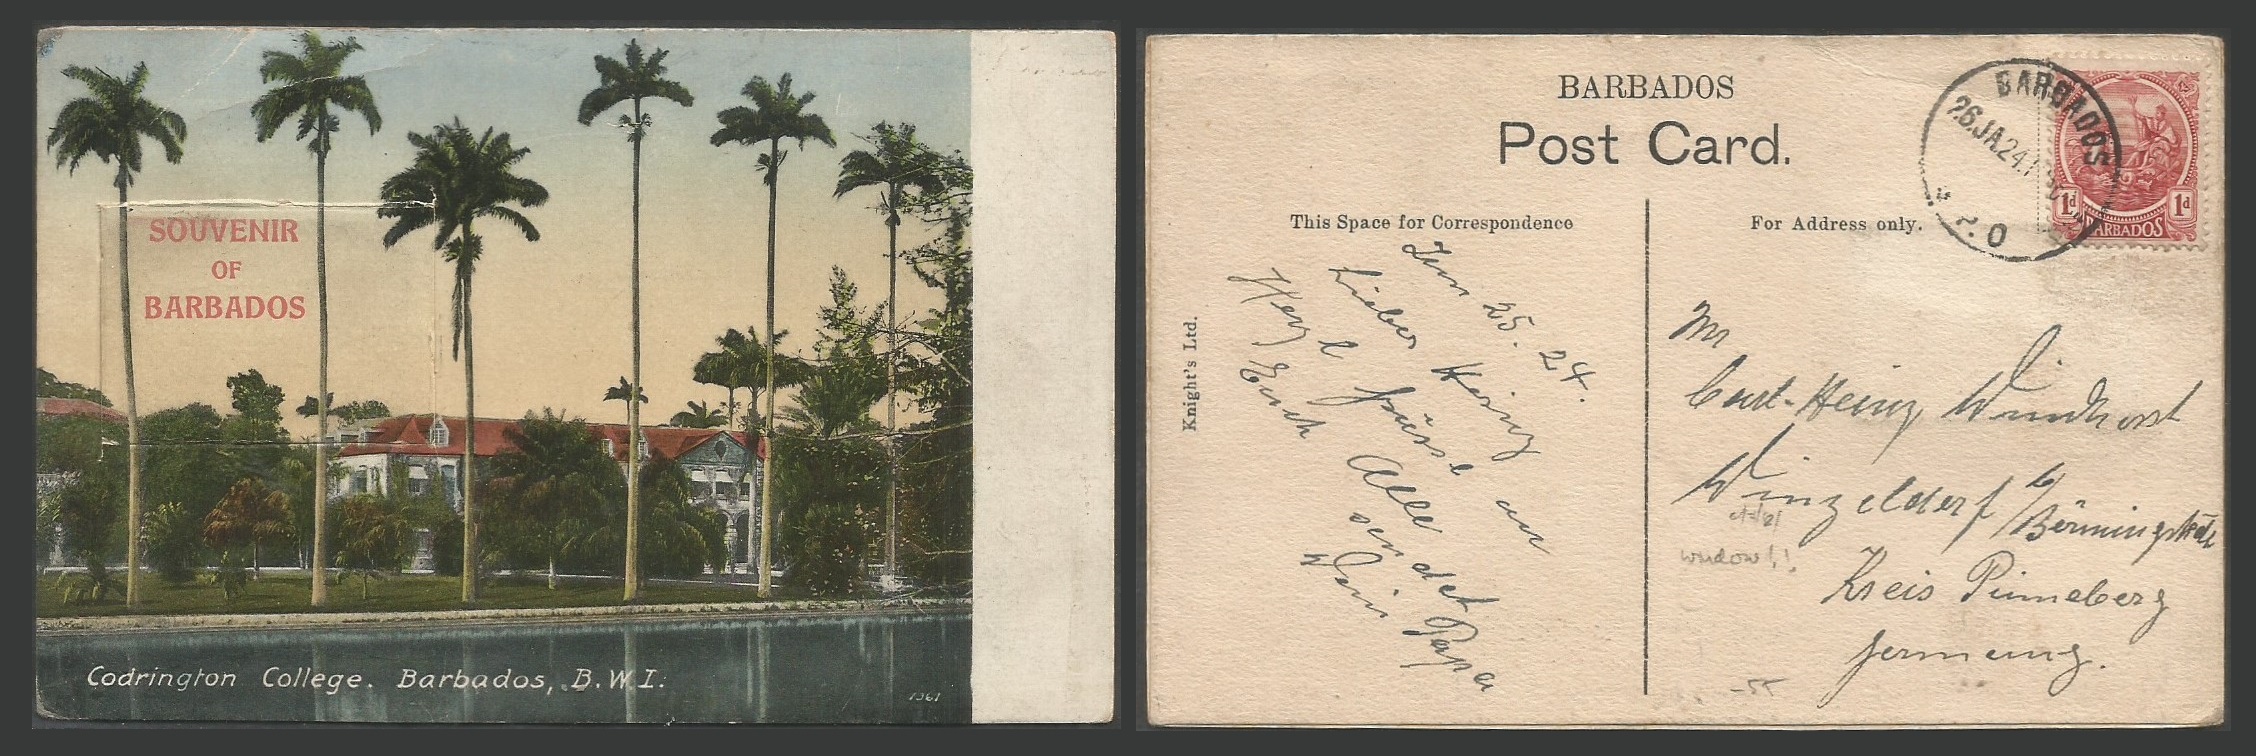 SOUVENIR
OF
BARBADOS
Codrington College. Barbados, B.W.I.
1361
BARBADOS
Post Card.
This Space for Correspondence
For Address only.
Knight's Ltd.
BARBADOS
26.JA.24
P.O
1d 1d
BARBADOS
25. 24.
Lieber Heinz
Herzl Grüsse an
Euch Alle sendet
Dein Papa
Mr
Curt-Heinz Windhorst
Winzeldorf b/
Bönningstedt
Kreis Pinneberg
Germany.
window!!
-55